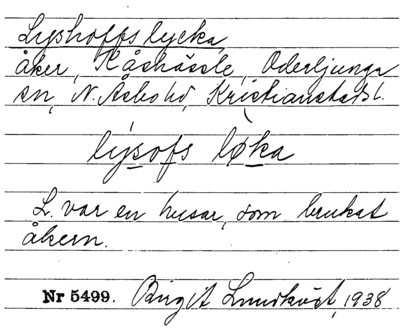 Lyshoffs lycka,
åker, Råshässle, Oderljunga
sn, N. Åsbo hd, Kristianstads l.
lýsofs lø̀ka
L. var en husar, som brukat
åkern.
Nr 5499. Birgit Lundkvist, 1938